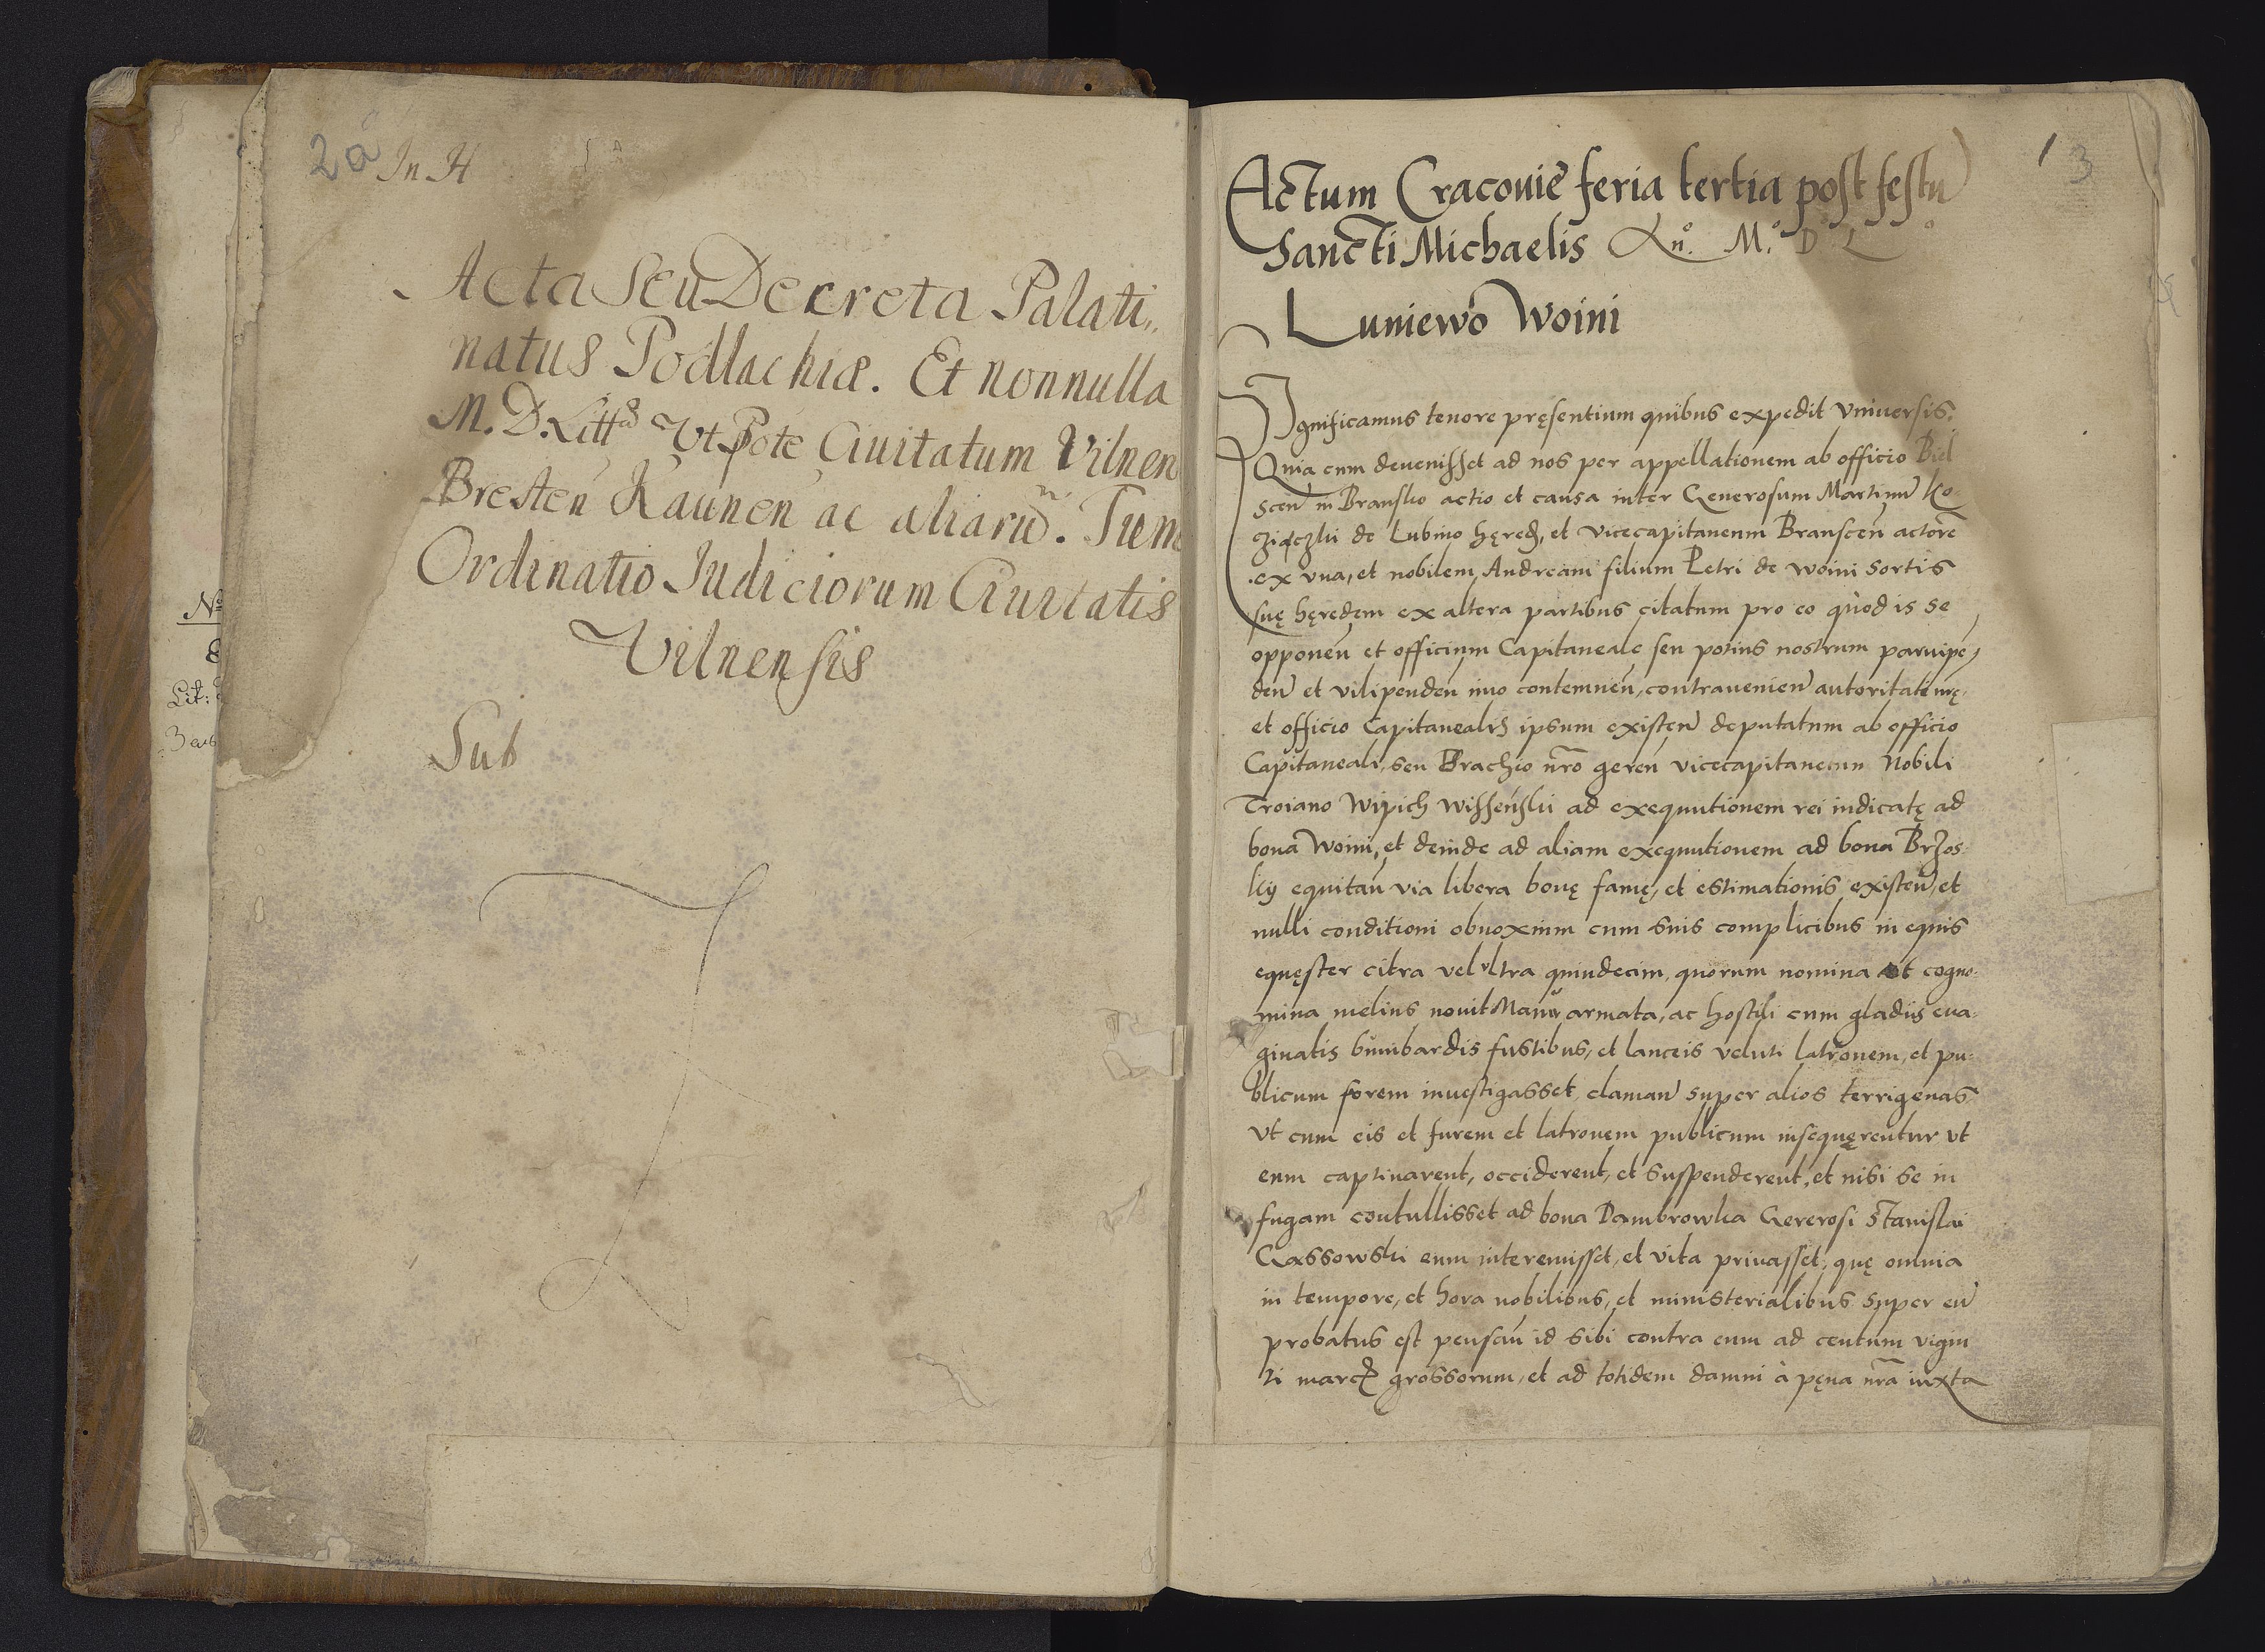 2a
In H
Acta Seu Decreta Palati„
natus Podlachiæ. Et nonnulla
M. D. Littæ Vt Pote Ciuitatum Vilnen
Bresten Kaunen ac aliarũ. Tum
Ordinatio Judiciorum Ciuitatis
Vilnensis
Sub
No
Lit:
1 3
Actum Cracouiẽ feria tertia post festũ
Sancti Michaelis Anº. M.º D L º
Luniewo Woini
Ignificamus tenore pręsentium quibus expedit vniuersis.
Quia cum deuenisset ad nos per appellationem ab officio Biel
scen̄ in Bransko actio et causa inter Generosum Martinũ Ko
cziączki de Lubino hęred, et vicecapitaneum Branscen̄ actorẽ
ex vna, et nobilem Andream filium Petri de Woini sortis
suę hęredem ex altera partibus citatum pro eo quod is se
opponen̄ et officium Capitaneale seu potius nostrum paruipẽ
den̄ et vilipenden̄ imo contemnen̄, contrauenien̄ autoritati nrę,
et officio Capitanealis ipsum existen̄ deputatum ab officio
Capitaneali, seu Brachio nr̃o geren̄ vicecapitaneum Nobili
Troiano Wipich Wissenski ad exequutionem rei iudicatę ad
bona Woini, et deinde ad aliam exequutionem ad bona Brzos
ky equitan̄ via libera bonę famę, et estimationis existen̄, et
nulli conditioni obnoxium cum suis complicibus in equis
equęster citra vel vltra quindecim, quorum nomina et cogno
mina melius nouit Manu armata, ac hostili cum gladiis eua
ginatis bumbardis fustibus, et lanceis veluti latronem, et pu
blicum forem inuestigasset, claman̄ super alios terrigenas
vt cum eis et furem et latronem publicum insequęrentur vt
eum captiuarent, occiderent, et suspenderent, et nisi se in
fugam contullisset ad bona Dambrowka Gererosi Stanislai
Gassowski eum interemisset, et vita priuasset, quę omnia
in tempore, et hora nobilibus, et ministerialibus super eũ
probatus est pensan̄ id sibi contra eum ad centum vigin
ti marcꝭ grossorum, et ad totidem damni à pęna nr̃a iuxta